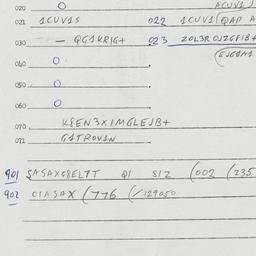 020 O ACUV1
021 1CUV1S 022 1CUV1(QAP A
030 - QG1KRIG+ 023 ZOL3ROJZGFIB+
040 O
050 O
060 O
070 K8EN3XIMGLEJB+
071 G1TROV1N
901 SASAXG8EL7T QI SIZ (002 (235
902 CIASAX (776 (/129050